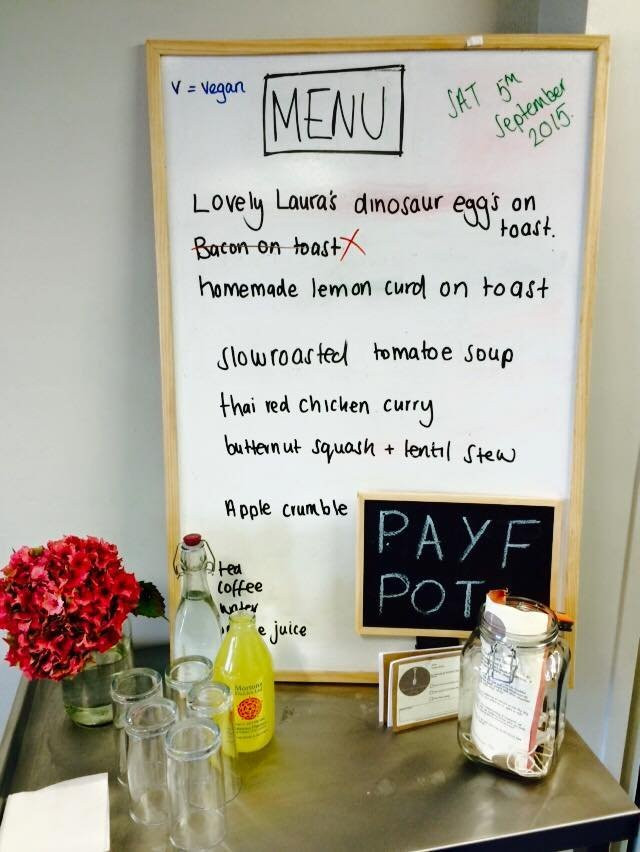 V = vegan
MENU
SAT 5TH
September
2015.
Lovely Laura's dinosaur egg's on
toast.
Bacon on toast X
homemade lemon curd on toast
slowroasted tomatoe soup
thai red chicken curry
butternut squash + lentil stew
Apple crumble
tea
coffee
water
juice
PAYF
POT